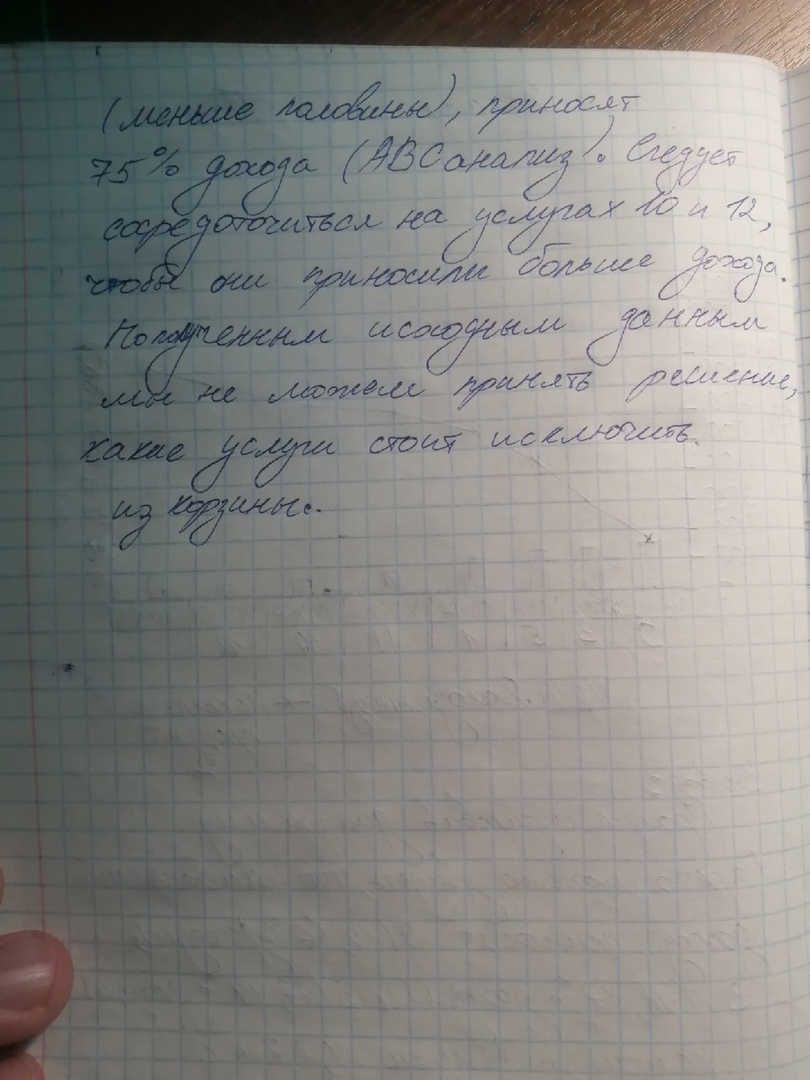 (меньше половины), приносят
75% дохода (АВС анализ). Следует
сосредоточиться на услугах 10 и 12,
чтобы они приносили больше дохода.
По полученным исходным данным
мы не можем принять решение,
какие услуги стоит исключить
из корзины.